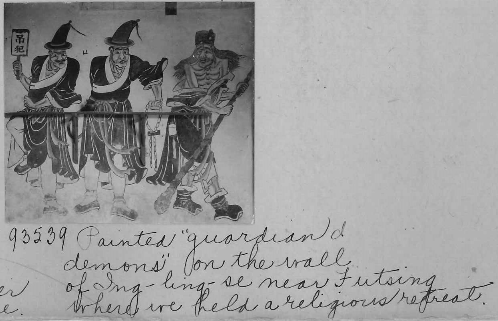 吊犯
93539 Painted "guardian
demons" on the wall
of Ing-ling-se near Futsing
where we held a religious retreat.
er
e.